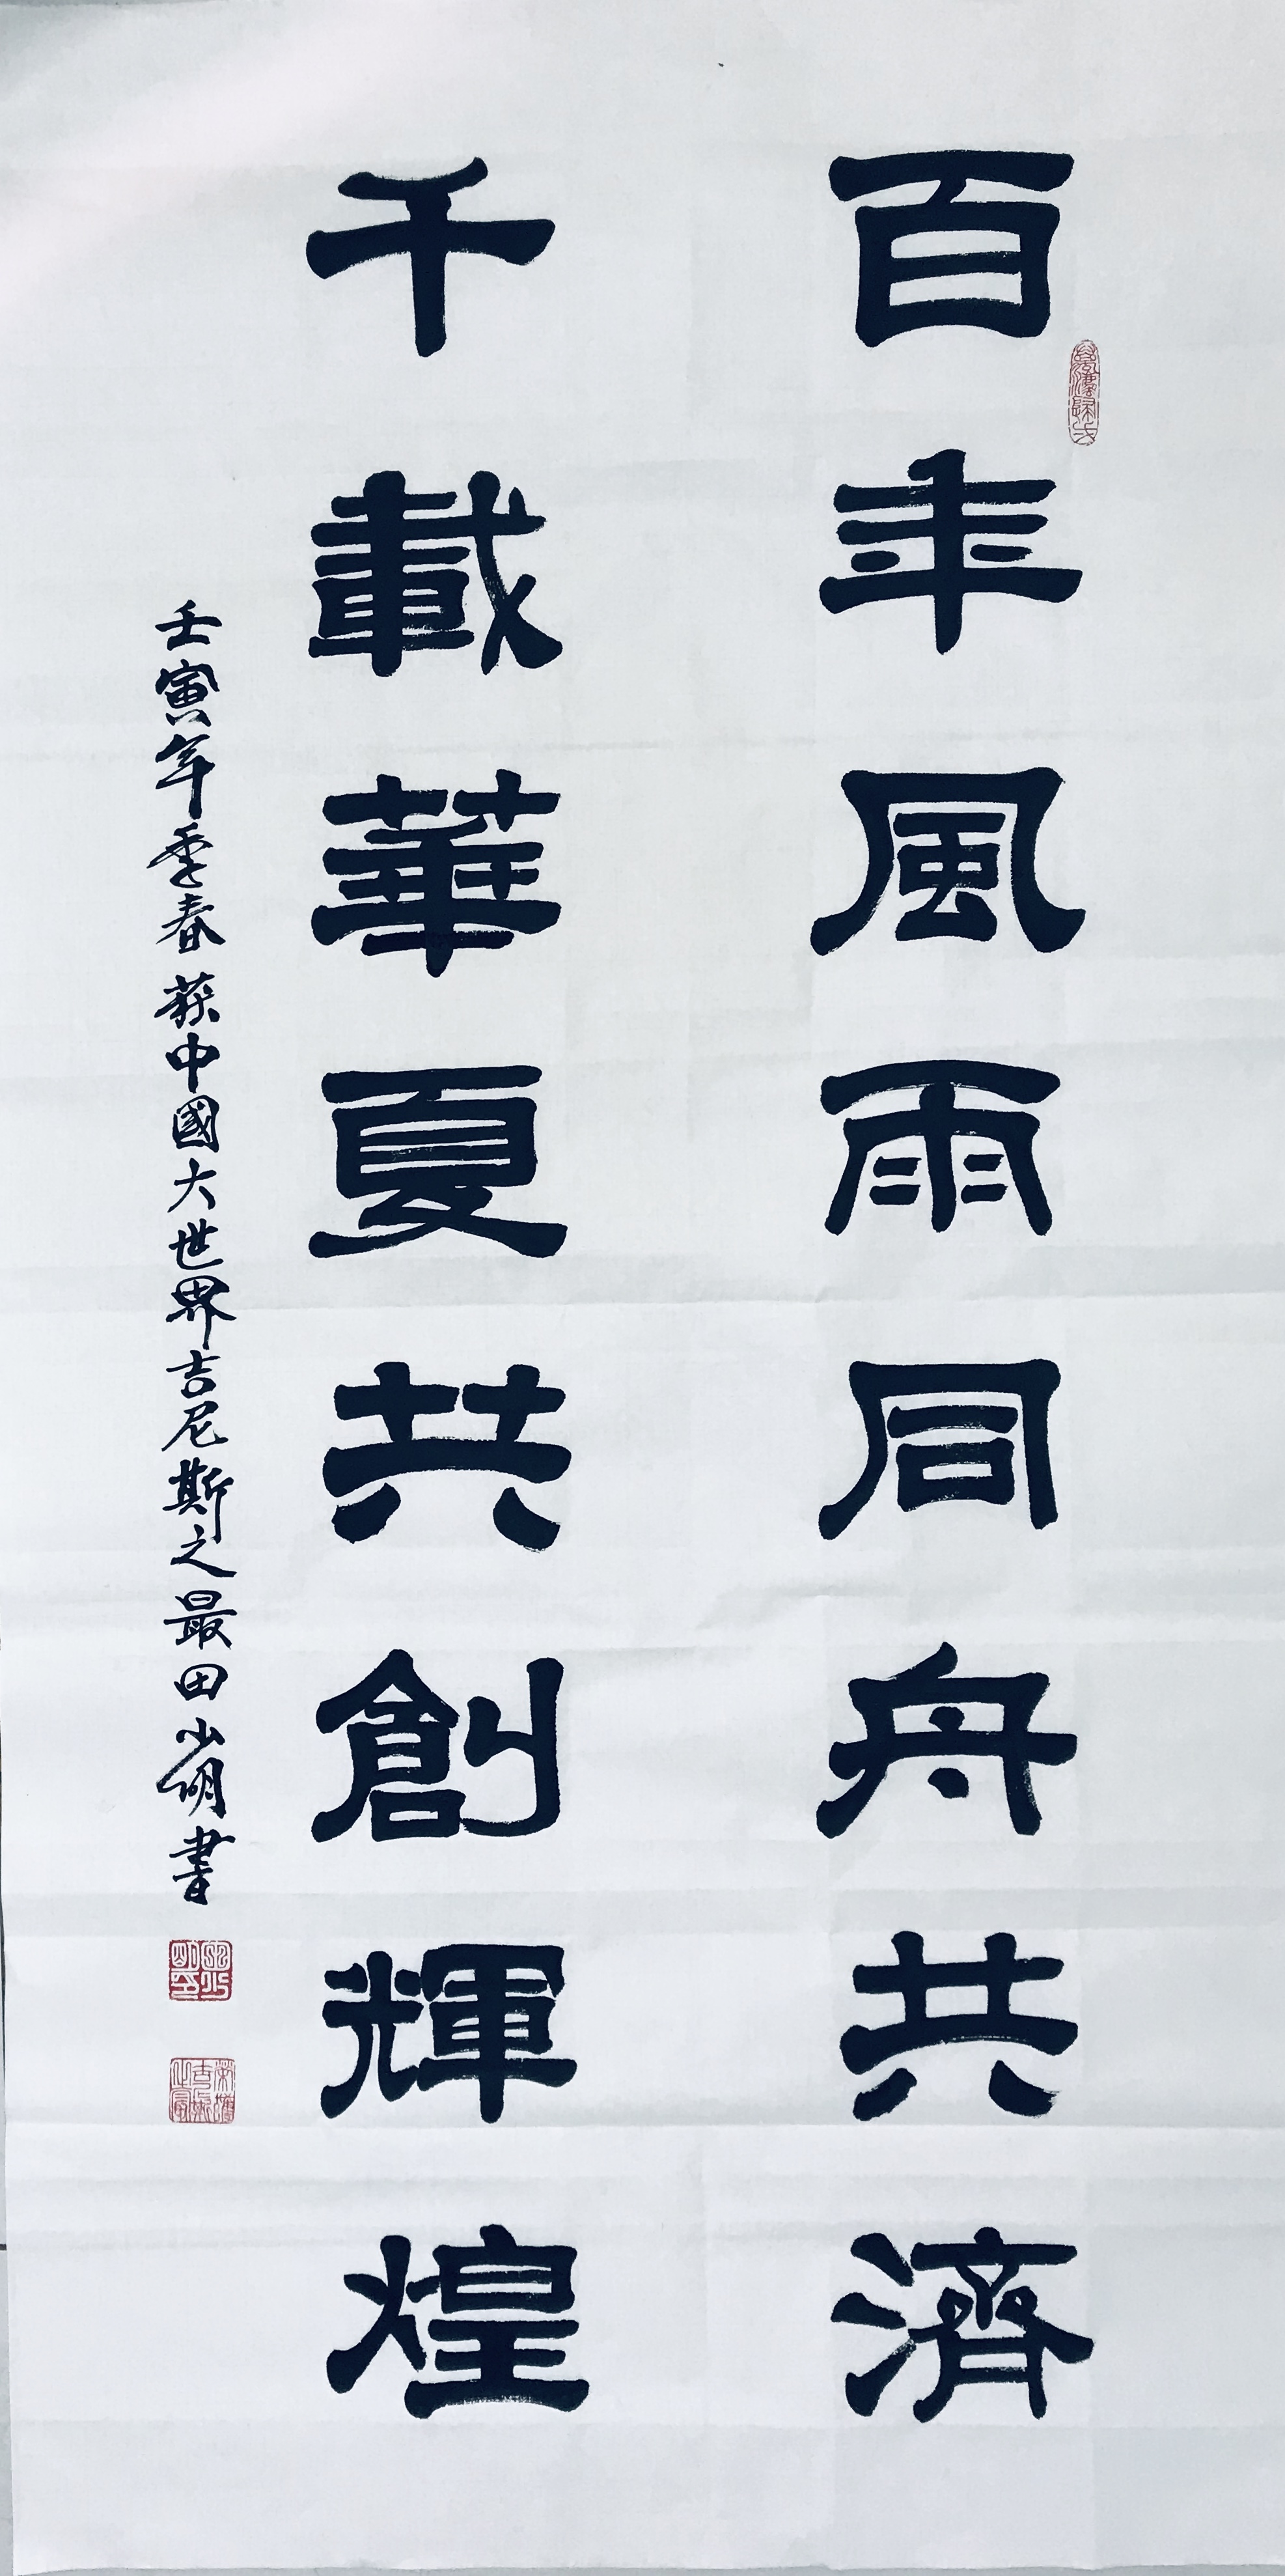 百年風雨同舟共濟
千載華夏共創輝煌
壬寅年季春获中國大世界吉尼斯之最田少明書